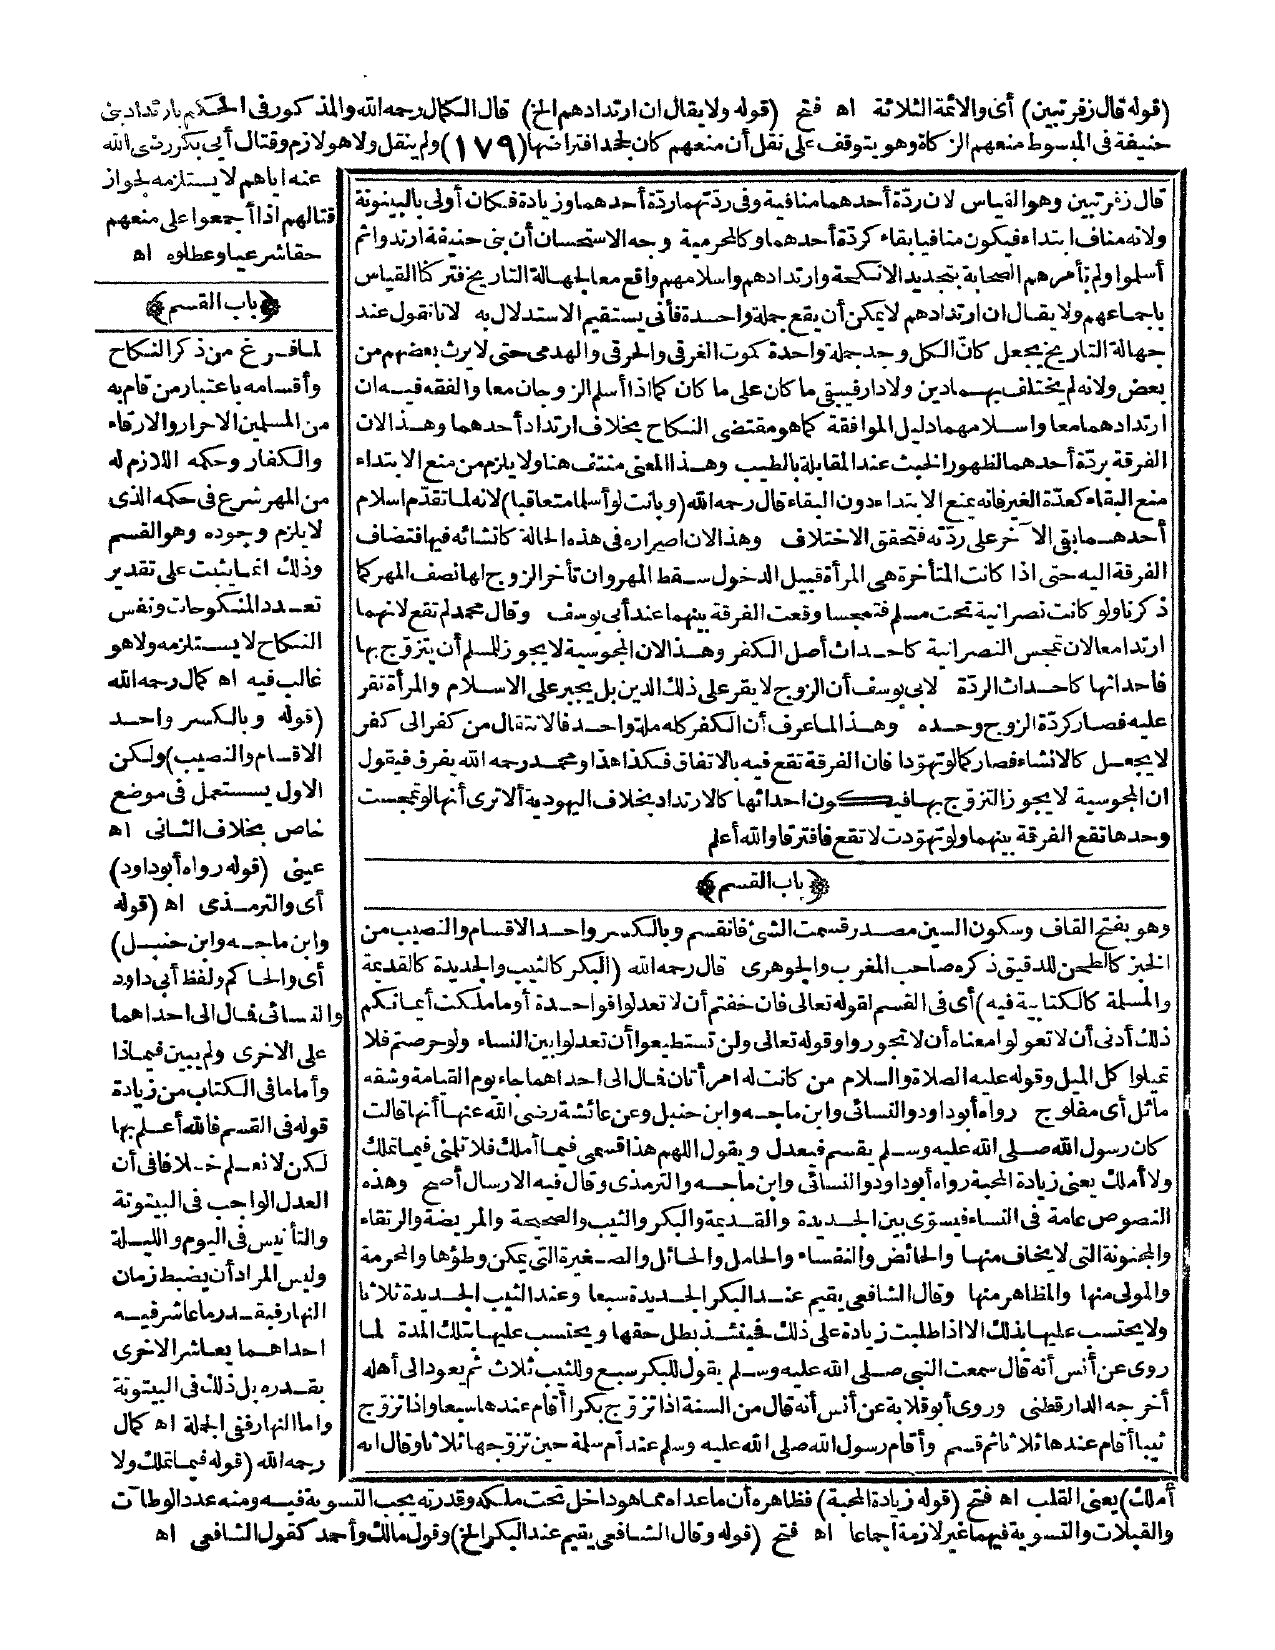 (قوله قال زفر تبين) أى والائمة الثلاثة اه فتح (قوله ولا يقال ان ارتدادهم الخ) قال الكمال رحمه الله والمذكور فى الحكم بارتداد بنى
حنيفة فى المبسوط منعهم الزكاة وهو يتوقف على نقل أن منعهم كان لجحد افتراضها (١٧٩) ولم ينقل ولا هو لازم وقتال أبى بكر رضى الله
عنه اياهم لا يستلزمه لجواز
قتالهم اذا أجمعوا على منعهم
حقا شرعيا وعطلوه اه
﴿باب القسم﴾
لما فرغ من ذكر النكاح
وأقسامه باعتبار من قام به
من المسلمين الاحرار والارقاء
والكفار وحكمه اللازم له
من المهر شرع فى حكمه الذى
لا يلزم وجوده وهو القسم
وذلك انما يثبت على تقدير
تعدد المنكوحات ونفس
النكاح لا يستلزمه ولا هو
غالب فيه اه كمال رحمه الله
(قوله وبالكسر واحد
الاقسام والنصيب) ولكن
الاول يستعمل فى موضع
خاص بخلاف الثانى اه
عينى (قوله رواه أبو داود)
أى والترمذى اه (قوله
وابن ماجه وابن حنبل)
أى والحاكم ولفظ أبى داود
والنسائى فمال الى احداهما
على الاخرى ولم يبين فيماذا
وأما ما فى الكتاب من زيادة
قوله فى القسم فالله أعلم بها
لكن لا نعلم خلافا فى أن
العدل الواجب فى البيتوتة
والتأنيس فى اليوم والليلة
وليس المراد أن يضبط زمان
النهار فبقدر ما عاشر فيه
احداهما يعاشر الاخرى
بقدره بل ذلك فى البيتوتة
واما النهار ففى الجملة اه كمال
رحمه الله (قوله فيما تملك ولا
قال زفر تبين وهو القياس لان ردة أحدهما منافية وفى ردتهما ردة أحدهما وزيادة فكان أولى بالبينونة
ولانه مناف ابتداء فيكون منافيا بقاء كردة أحدهما وكالمحرمية وجه الاستحسان أن بنى حنيفة ارتدوا ثم
أسلموا ولم تأمرهم الصحابة بتجديد الانكحة وارتدادهم واسلامهم واقع معا لجهالة التاريخ فتركنا القياس
باجماعهم ولا يقال ان ارتدادهم لا يمكن أن يقع جملة واحدة فأنى يستقيم الاستدلال به لانا نقول عند
جهالة التاريخ يجعل كأن الكل وجد جملة واحدة كموت الغرقى والحرقى والهدمى حتى لا يرث بعضهم من
بعض ولانه لم يختلف بهما دين ولا دار فيبقى ما كان على ما كان كما اذا أسلم الزوجان معا والفقه فيه ان
ارتدادهما معا واسلامهما دليل الموافقة كما هو مقتضى النكاح بخلاف ارتداد أحدهما وهذا لان
الفرقة بردة أحدهما لظهور الخبث عند المقابلة بالطيب وهذا المعنى منتف هنا ولا يلزم من منع الابتداء
منع البقاء كعدة الغير فانه يمنع الابتداء دون البقاء قال رحمه الله (وبانت لو أسلما متعاقبا) لانه لما تقدم اسلام
أحدهما بقى الآخر على ردته فتحقق الاختلاف وهذا لان اصراره فى هذه الحالة كانشائه فيها فتضاف
الفرقة اليه حتى اذا كانت المتأخرة هى المرأة قبل الدخول سقط المهر وان تأخر الزوج لها نصف المهر كما
ذكرنا ولو كانت نصرانية تحت مسلم فتمجسا وقعت الفرقة بينهما عند أبى يوسف وقال محمد لم تقع لانهما
ارتدا معا لان تمجس النصرانية كاحداث أصل الكفر وهذا لان المجوسية لا يجوز للمسلم أن يتزوج بها
فاحداثها كاحداث الردة لابى يوسف أن الزوج لا يقر على ذلك الدين بل يجبر على الاسلام والمرأة تقر
عليه فصار كردة الزوج وحده وهذا لما عرف أن الكفر كله ملة واحدة فالانتقال من كفر الى كفر
لا يجعل كالانشاء فصار كما لو تهودا فان الفرقة تقع فيه بالاتفاق فكذا هذا ومحمد رحمه الله يفرق فيقول
ان المجوسية لا يجوز التزوج بها فيكون احداثها كالارتداد بخلاف اليهودية ألا ترى أنها لو تمجست
وحدها تقع الفرقة بينهما ولو تهودت لا تقع فافترقا والله أعلم
﴿باب القسم﴾
وهو بفتح القاف وسكون السين مصدر قسمت الشئ فانقسم وبالكسر واحد الاقسام والنصيب من
الخبز كالطحن للدقيق ذكره صاحب المغرب والجوهرى قال رحمه الله (البكر كالثيب والجديدة كالقديمة
والمسلمة كالكتابية فيه) أى فى القسم لقوله تعالى فان خفتم أن لا تعدلوا فواحدة أو ما ملكت أيمانكم
ذلك أدنى أن لا تعولوا معناه أن لا تجوروا وقوله تعالى ولن تستطيعوا أن تعدلوا بين النساء ولو حرصتم فلا
تميلوا كل الميل وقوله عليه الصلاة والسلام من كانت له امرأتان فمال الى احداهما جاء يوم القيامة وشقه
مائل أى مفلوج رواه أبو داود والنسائى وابن ماجه وابن حنبل وعن عائشة رضى الله عنها أنها قالت
كان رسول الله صلى الله عليه وسلم يقسم فيعدل ويقول اللهم هذا قسمى فيما أملك فلا تلمنى فيما تملك
ولا أملك يعنى زيادة المحبة رواه أبو داود والنسائى وابن ماجه والترمذى وقال فيه الارسال أصح وهذه
النصوص عامة فى النساء فيسوى بين الجديدة والقديمة والبكر والثيب والصحيحة والمريضة والرتقاء
والمجنونة التى لا يخاف منها والحائض والنفساء والحامل والحائل والصغيرة التى يمكن وطؤها والمحرمة
والمولى منها والمظاهر منها وقال الشافعى يقيم عند البكر الجديدة سبعا وعند الثيب الجديدة ثلاثا
ولا يحتسب عليها بذلك الا اذا طلبت زيادة على ذلك فحينئذ بطل حقها ويحتسب عليها بتلك المدة لما
روى عن أنس أنه قال سمعت النبى صلى الله عليه وسلم يقول للبكر سبع وللثيب ثلاث ثم يعود الى أهله
أخرجه الدارقطنى وروى أبو قلابة عن أنس أنه قال من السنة اذا تزوج بكرا أقام عندها سبعا واذا تزوج
ثيبا أقام عندها ثلاثا ثم قسم وأقام رسول الله صلى الله عليه وسلم عند أم سلمة حين تزوجها ثلاثا وقال انه
أملك) يعنى القلب اه فتح (قوله زيادة المحبة) فظاهره أن ما عداه مما هو داخل تحت ملكه وقدرته يجب التسوية فيه ومنه عدد الوطآت
والقبلات والتسوية فيهما غير لازمة اجماعا اه فتح (قوله وقال الشافعى يقيم عند البكر الخ) وقول مالك وأحمد كقول الشافعى اه